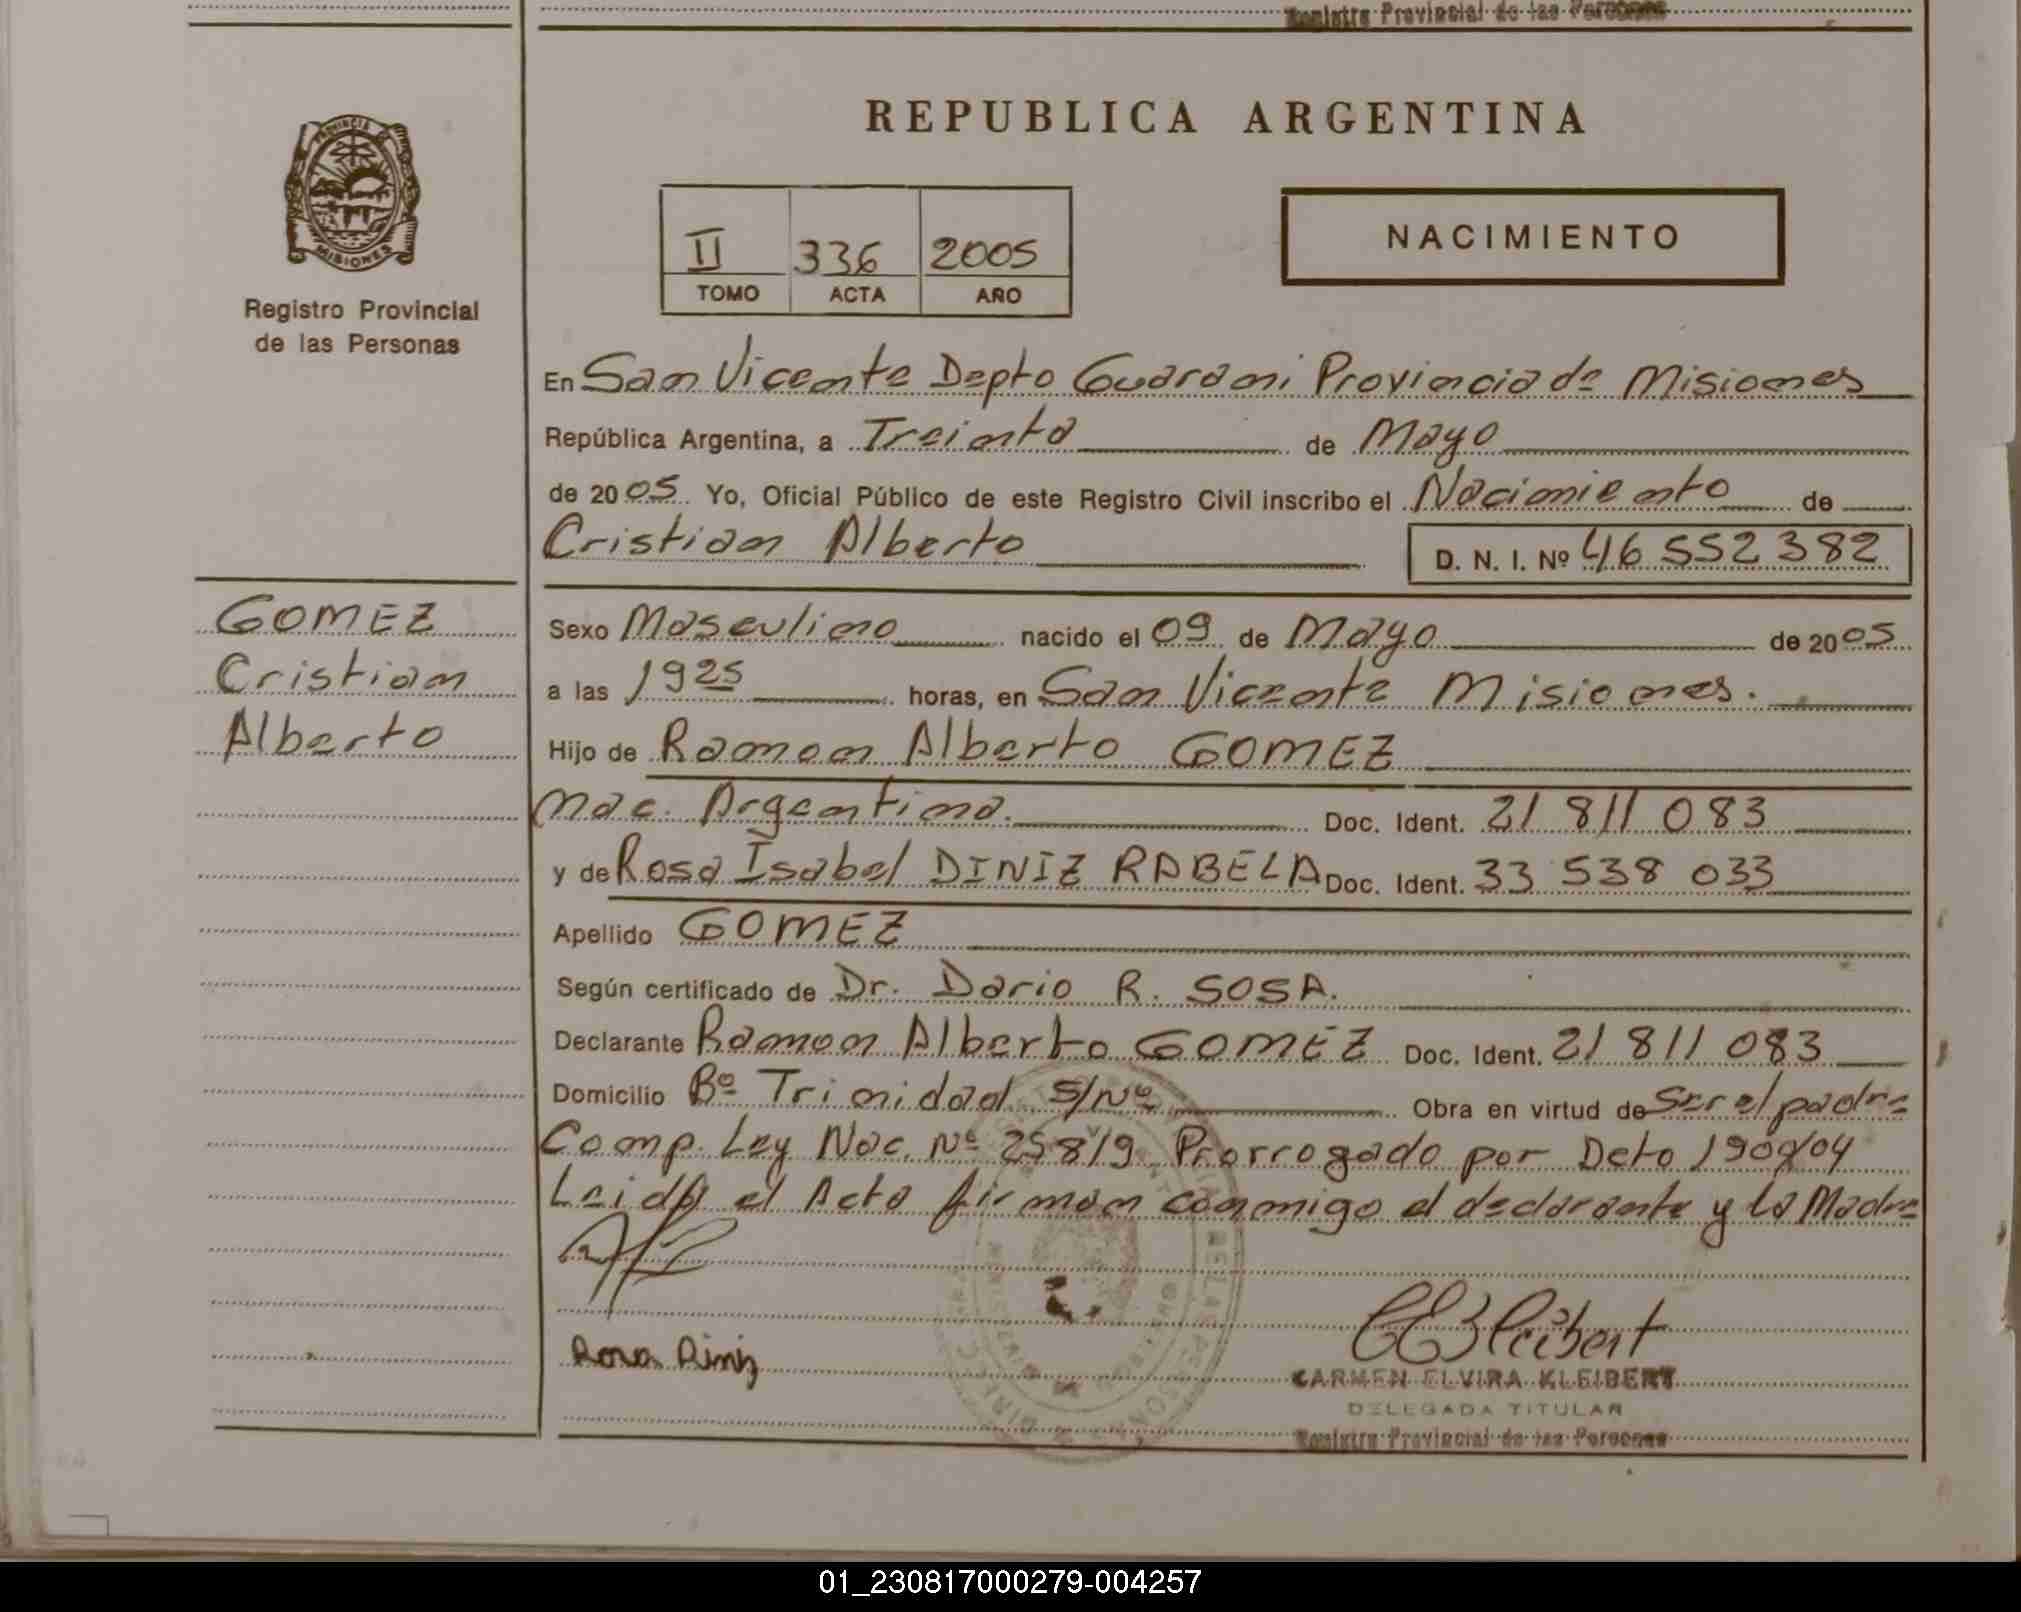 Registro Provincial de las Personas
PROVINCIA
MISIONES
Registro Provincial
de las Personas
REPUBLICA ARGENTINA
II 336 2005
TOMO ACTA AÑO
NACIMIENTO
En San Vicente Depto Guarani Provincia de Misiones
República Argentina, a Treinta de Mayo
de 2005 Yo, Oficial Público de este Registro Civil inscribo el Nacimiento de
Cristian Alberto D. N. I. Nº 46 552 382
GOMEZ
Cristian
Alberto
Sexo Masculino nacido el 09 de Mayo de 2005
a las 1925 horas, en San Vicente Misiones.
Hijo de Ramon Alberto GOMEZ
Nac. Argentina. Doc. Ident. 21 811 083
y de Rosa Isabel DINIZ RABELA Doc. Ident. 33 538 033
Apellido GOMEZ
Según certificado de Dr. Dario R. SOSA.
Declarante Ramon Alberto GOMEZ Doc. Ident. 21 811 083
Domicilio Bº Trinidad S/Nº Obra en virtud de Ser el padre
Comp. Ley Nac. Nº 25819 Prorrogado por Deto
Leida el Acta firman conmigo el declarante y la Madre
Rosa Diniz
CARMEN ELVIRA KLEIBERT
DELEGADA TITULAR
Registro Provincial de las Personas
01_230817000279-004257